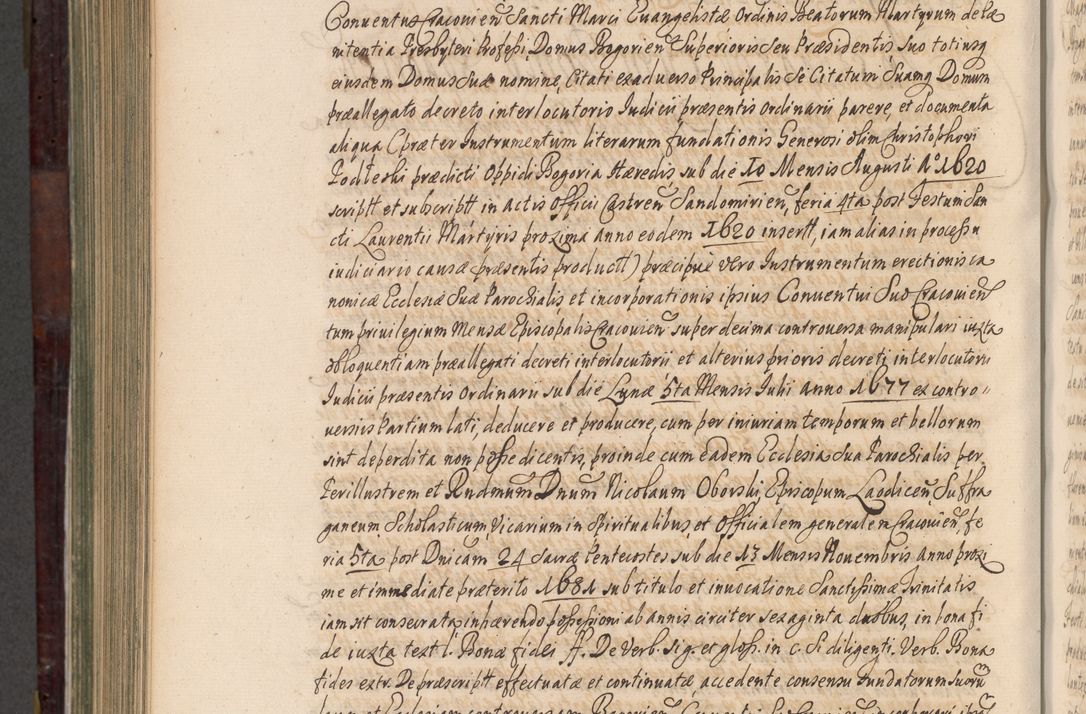 Conventus Cracovien̄ Sancti Marci Evangelistæ Ordinis Beatorum Martyrum de Pæ
nitentia Presbyteri Professi, Domus Bogorien̄ Superioris seu Præsidentis, suo totiusq
eiusdem Domus suæ nomine, Citati ex adverso Principalis se Citaturi, suamq Domum
præallegato decreto interlocutorio Iudicii præsentis ordinarii parere, et documenta
aliqua (præter Instrumentum literarum fundationis Generosi olim Christophori
Podleski prædicti Oppidi Bogoria Hæredis sub die 10 Mensis Augusti Aº 1620
script̄ et subscript̄ in actis Officii Castren̄ Sandomirien̄, feria 4ta post Festum San
cti Laurentii Martyris proxima anno eodem 1620 insert̄, iam alias in processu
iudiciario causæ præsentis product̄) præcipue vero Instrumentum erectionis ca
nonicæ Ecclesiæ suæ Parochialis, et incorporationis ipsius Conventui suo Cracovien̄
tum privilegium Mensæ Episcopalis Cracovien̄ super decima controversa manipulari iuxta
obloquentiam præallegati decreti interlocutorii et alterius prioris decreti interlocutorii
Iudicii præsentis Ordinarii sub die Lunæ 5ta Mensis Iulii anno 1677 ex contro〃
versiis Partium lati, deducere et producere, cum per iniuriam temporum et bellorum
sint deperdita non posse dicentis, proinde cum eadem Ecclesia sua Parochialis per
Perillustrem et Rndmum Dnum Nicolaum Oborski, Episcopum Laodicen̄, Suffra
ganeum, Scholasticum, Vicarium in Spiritualibus, et Officialem generalem Cracovien̄, fe
ria 5ta post Dnicam 24 sacræ Pentecostes sub die 13 Mensis Novembris anno proxi
me et immediate præterito 1681 sub titulo et invocatione Sanctissimæ Trinitatis
iam sit consecrata, inhærendo possessioni ab annis circiter sexaginta duobus, in bona fi
de iuxta text l. Bonæ fidei ff. De Verb. sig. et gloss. in c. Si diligenti. Verb. Bona
fides extr. De præscript̄ effectuatæ et continuatæ, accedente consensu Fundatorum suorū